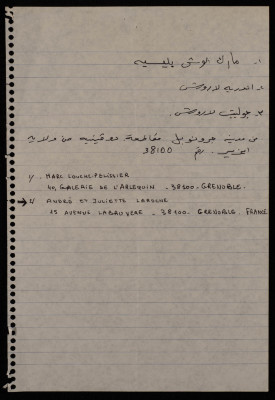 ١ـ مارك لوشي بليسيه
٢ـ اندريه لاروش
٣ـ جوليت لاروش
من مدينة جرونوبل مقاطعة دوفينيه من ولاية
ايزير . رقم 38100
1/ MARC LOUCHE-PELISSIER
40, GALERIE DE L'ARLEQUIN _ 38100. GRENOBLE.
→ 2/ ANDRÉ ET JULIETTE LAROCHE
25 AVENUE LABRUYERE _ 38100. GRENOBLE. FRANCE